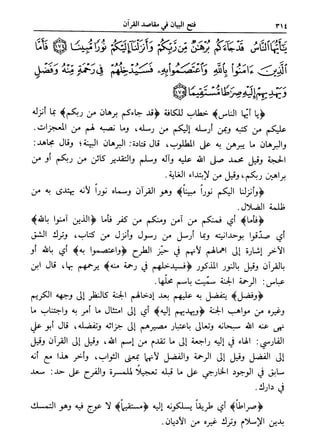 ٣١٤
فتح البيان في مقاصد القرآن
يَٰٓأَيُّهَا ٱلنَّاسُ قَدْ جَآءَكُم بُرْهَٰنٌ مِّن رَّبِّكُمْ وَأَنزَلْنَآ إِلَيْكُمْ نُورًا مُّبِينًا ﴿١٧٤﴾ فَأَمَّا
ٱلَّذِينَ ءَامَنُوا۟ بِٱللَّهِ وَٱعْتَصَمُوا۟ بِهِۦ فَسَيُدْخِلُهُمْ فِى رَحْمَةٍ مِّنْهُ وَفَضْلٍ
وَيَهْدِيهِمْ إِلَيْهِ صِرَٰطًا مُّسْتَقِيمًا ﴿١٧٥﴾
﴿يا أيها الناس﴾ خطاب للكافة ﴿قد جاءكم برهان من ربكم﴾ بما أنزله
عليكم من كتبه وبمن أرسله إليكم من رسله، وما نصبه لهم من المعجزات.
والبرهان ما يبرهن به على المطلوب، قال قتادة: البرهان البينة؛ وقال مجاهد:
الحجة وقيل محمد صلى الله عليه وآله وسلم والتقدير كائن من ربكم أو من
براهين ربكم، وقيل من لإبتداء الغاية.
﴿وأنزلنا اليكم نوراً مبيناً﴾ وهو القرآن وسماه نوراً لأنه يهتدى به من
ظلمة الضلال.
﴿فأما﴾ أي فمنكم من آمن ومنكم من كفر فأما ﴿الذين آمنوا بالله﴾
أي صدّقوا بوحدانيته وبما أرسل من رسول وأنزل من كتاب، وترك الشق
الآخر إشارة إلى اهمالهم لأنهم في حيّز الطرح ﴿واعتصموا به﴾ أي بالله أو
بالقرآن وقيل بالنور المذكور ﴿فسيدخلهم في رحمة منه﴾ يرحمهم بها، قال ابن
عباس: الرحمة الجنة سمّيت باسم محلّها.
﴿وفضل﴾ يتفضل به عليهم بعد إدخالهم الجنة كالنظر إلى وجهه الكريم
وغيره من مواهب الجنة ﴿ويهديهم إليه﴾ أي إلى امتثال ما أمر به واجتناب ما
نهى عنه الله سبحانه وتعالى باعتبار مصيرهم إلى جزائه وتفضله، قال أبو علي
الفارسي: الهاء في إليه راجعة إلى ما تقدم من إسم الله، وقيل إلى القرآن وقيل
إلى الفضل وقيل إلى الرحمة والفضل لأنهما بمعنى الثواب، وأخر هذا مع أنه
سابق في الوجود الخارجي على ما قبله تعجيلاً للمسرة والفرح على حد: سعد
في دارك.
﴿صراطاً﴾ أي طريقاً يسلكونه إليه ﴿مستقيماً﴾ لا عوج فيه وهو التمسك
بدين الإسلام وترك غيره من الأديان.